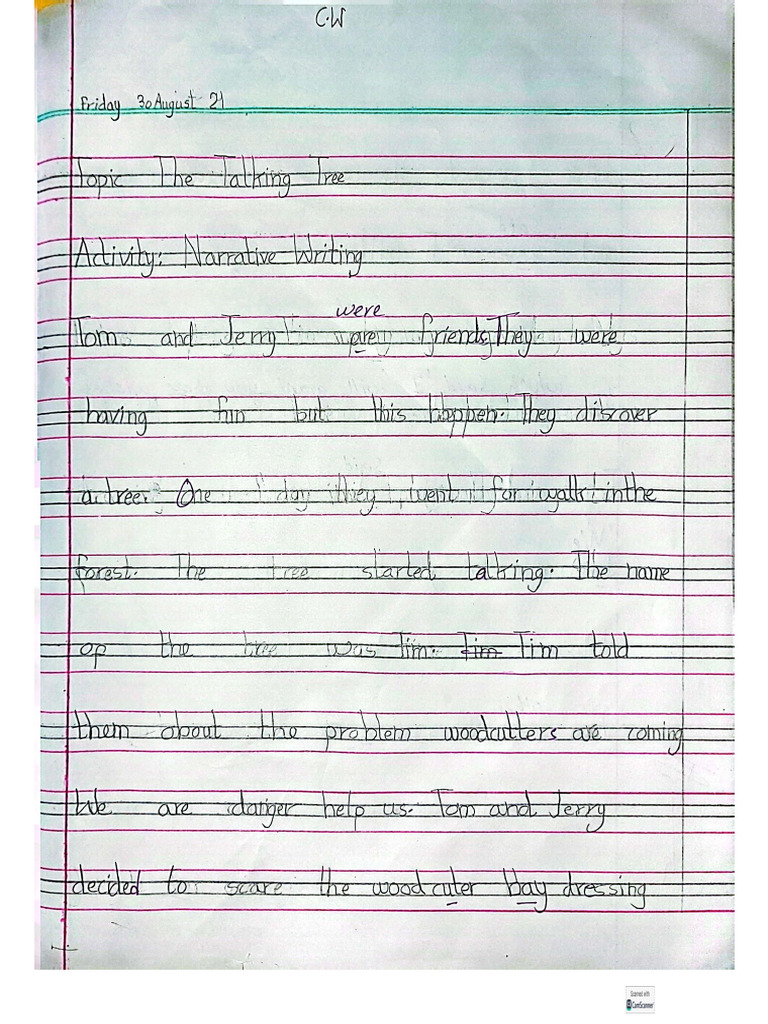 C.W
Friday 30 August 21
Topic The Talking Tree
Activity: Narrative Writing
were
Tom and Jerry are friends. They were
having fun but this happen. They discover
a tree. One day they went for walk in the
forest. The tree started talking. The name
of the tree was Tim. Tim Tim told
them about the problem woodcutters are coming
We are danger help us. Tom and Jerry
decided to scare the woodcuter bay dressing
Scanned with
CamScanner